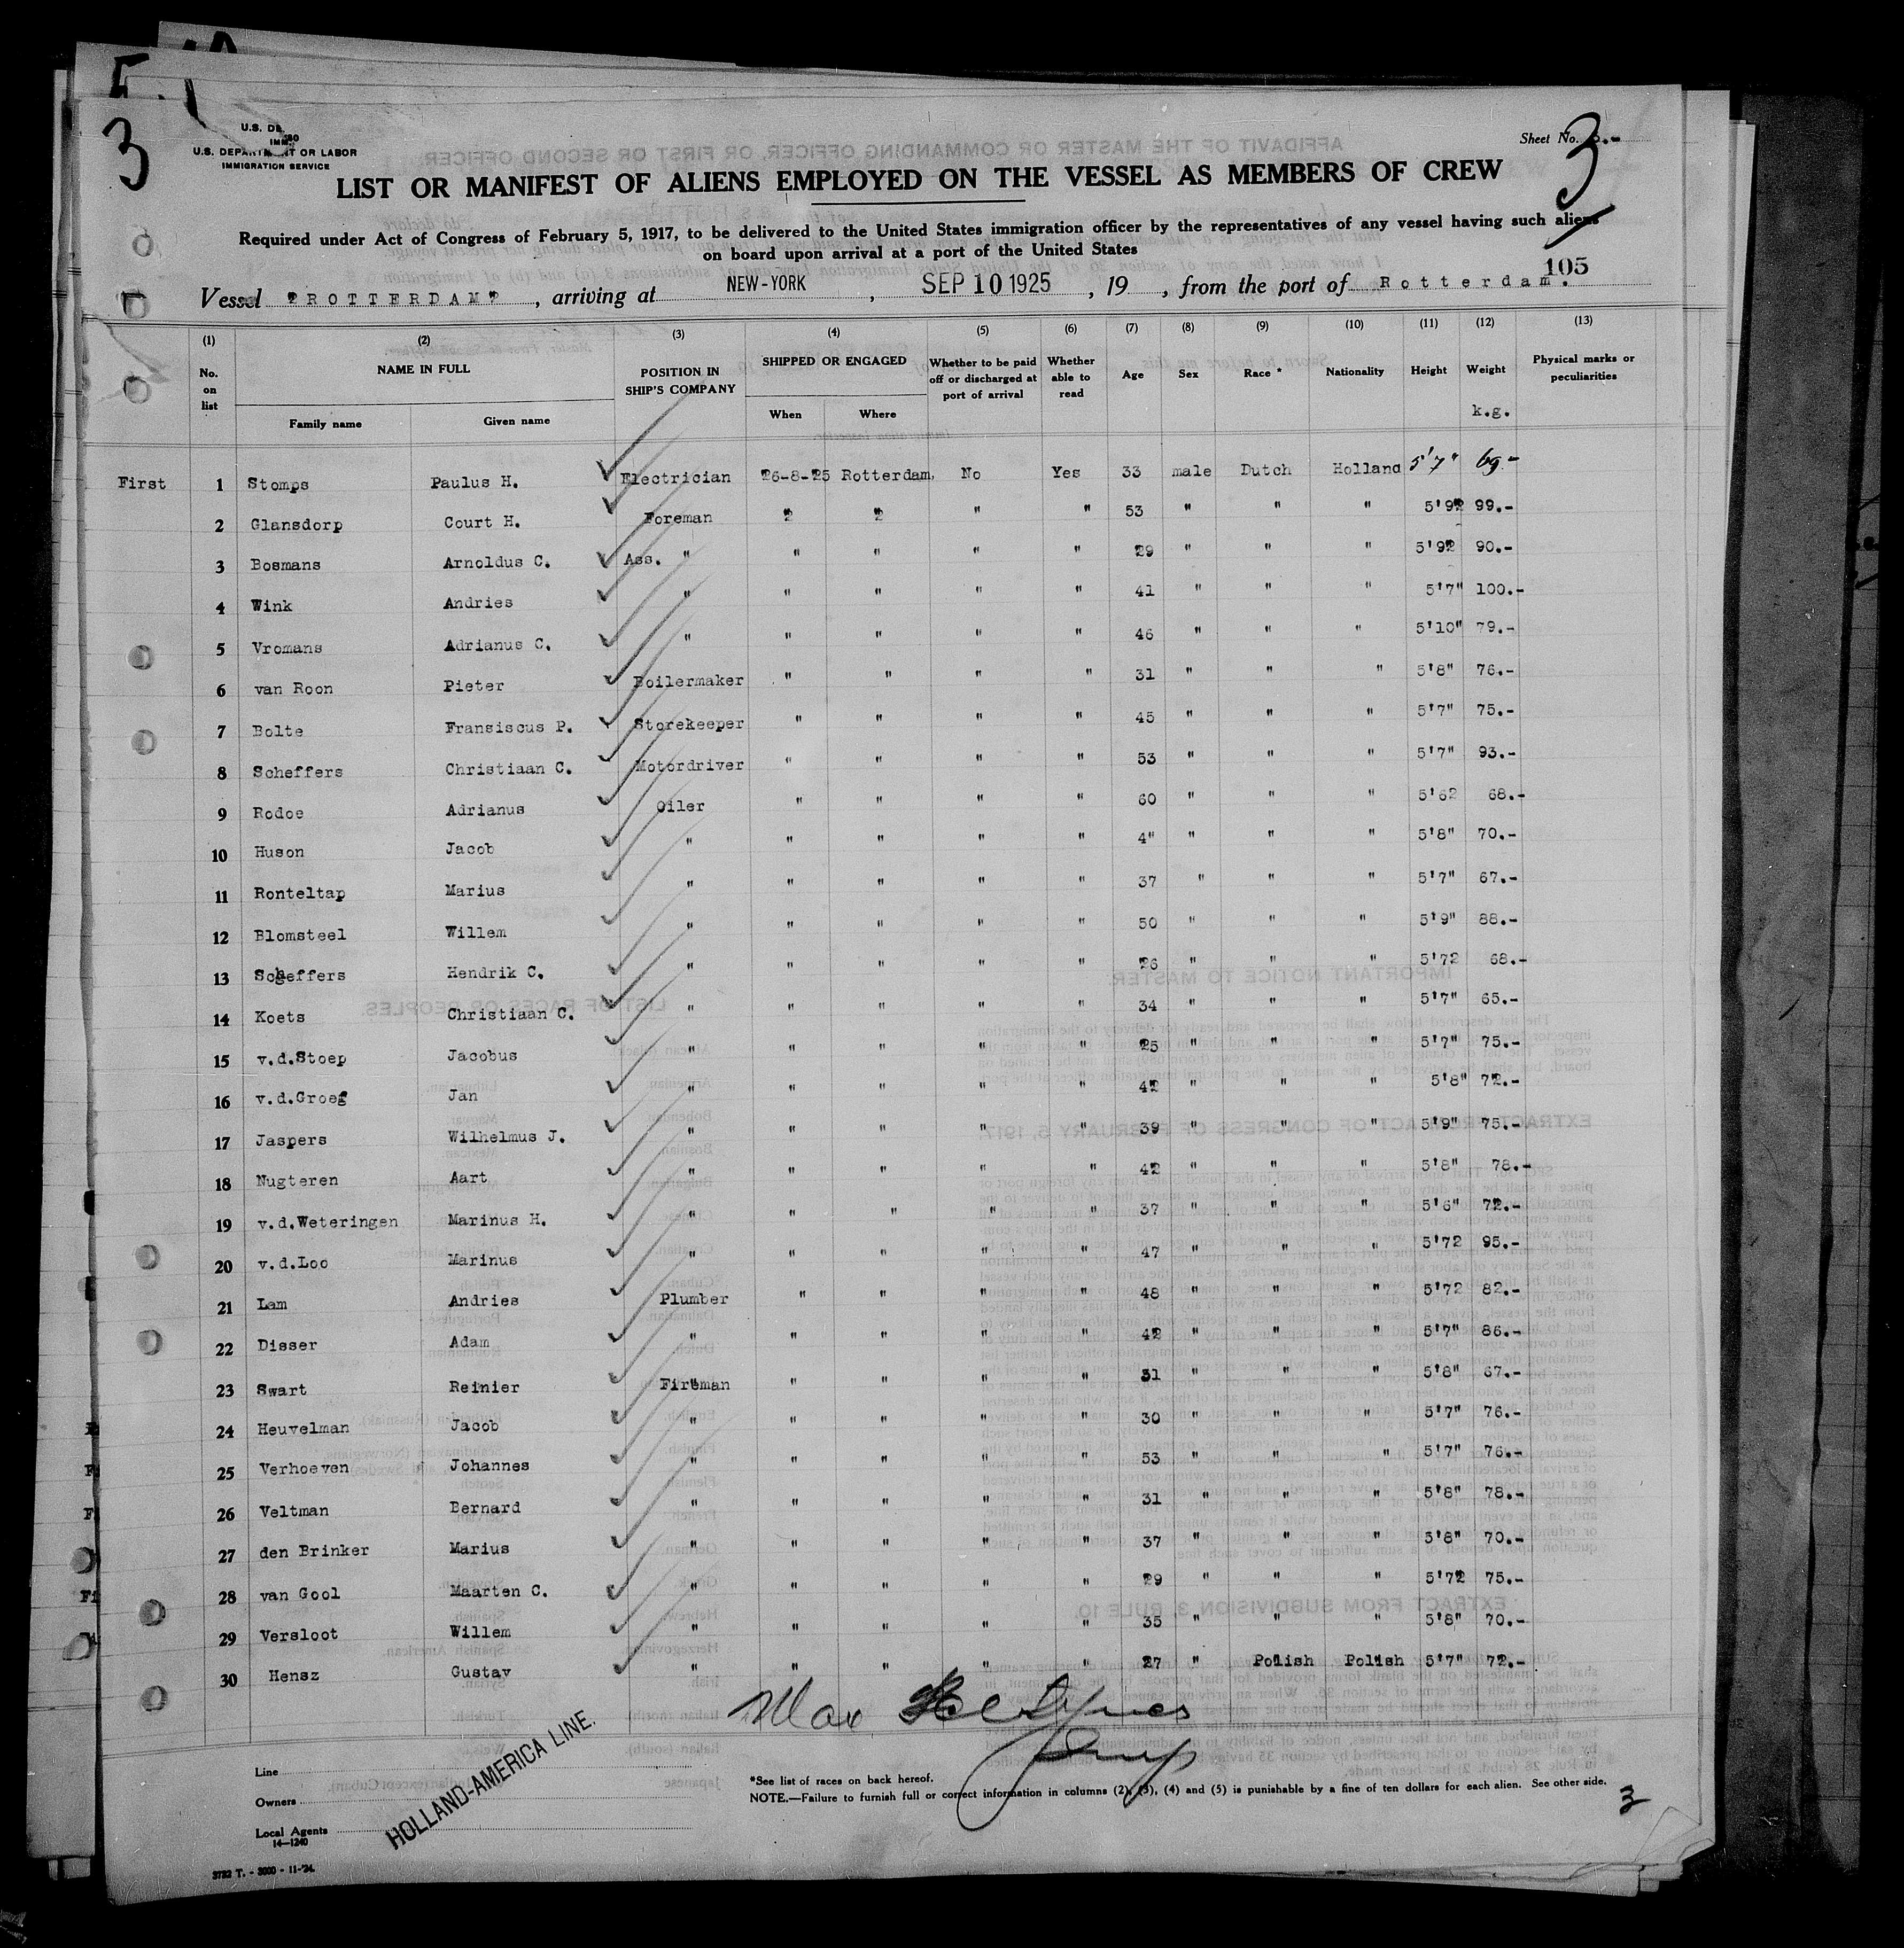 3
U.S. DEPARTMENT OR LABOR
IMMIGRATION SERVICE
Sheet No.
3
LIST OR MANIFEST OF ALIENS EMPLOYED ON THE VESSEL AS MEMBERS OF CREW
Required under Act of Congress of February 5, 1917, to be delivered to the United States immigration officer by the representatives of any vessel having such aliens
on board upon arrival at a port of the United States
105
Vessel "ROTTERDAM", arriving at NEW-YORK, SEP 10 1925, 19 , from the port of Rotterdam.
(1) (2) (3) (4) (5) (6) (7) (8) (9) (10) (11) (12) (13)
No. on list NAME IN FULL Family name Given name POSITION IN SHIP'S COMPANY SHIPPED OR ENGAGED When Where Whether to be paid off or discharged at port of arrival Whether able to read Age Sex Race * Nationality Height Weight k.g. Physical marks or peculiarities
First 1 Stomps Paulus H. Electrician 26-8-25 Rotterdam. No Yes 33 male Dutch Holland 5'7" 69.-
2 Glansdorp Court H. Foreman " " " " 53 " " " 5'9" 99.-
3 Bosmans Arnoldus C. Ass. " " " " " 29 " " " 5'9" 90.-
4 Wink Andries " " " " " 41 " " " 5'7" 100.-
5 Vromans Adrianus C. " " " " " 46 " " " 5'10" 79.-
6 van Roon Pieter Boilermaker " " " " 31 " " " 5'8" 76.-
7 Bolte Fransiscus P. Storekeeper " " " " 45 " " " 5'7" 75.-
8 Scheffers Christiaan C. Motordriver " " " " 53 " " " 5'7" 93.-
9 Rodoe Adrianus Oiler " " " " 60 " " " 5'62 68.-
10 Huson Jacob " " " " " 4" " " " 5'8" 70.-
11 Ronteltap Marius " " " " " 37 " " " 5'7" 67.-
12 Blomsteel Willem " " " " " 50 " " " 5'9" 88.-
13 Scheffers Hendrik C. " " " " " 26 " " " 5'72 68.-
14 Koets Christiaan C. " " " " " 34 " " " 5'7" 65.-
15 v.d.Stoep Jacobus " " " " " 25 " " " 5'7" 75.-
16 v.d.Groeg Jan " " " " " 42 " " " 5'8" 72.-
17 Jaspers Wilhelmus J. " " " " " 39 " " " 5'9" 75.-
18 Nugteren Aart " " " " " 42 " " " 5'8" 78.-
19 v.d.Weteringen Marinus H. " " " " " 37 " " " 5'6" 72.-
20 v.d.Loo Marinus " " " " " 47 " " " 5'72 95.-
21 Lam Andries Plumber " " " " 48 " " " 5'72 82.-
22 Disser Adam " " " " " 42 " " " 5'7" 86.-
23 Swart Reinier Fireman " " " " 31 " " " 5'8" 67.-
24 Heuvelman Jacob " " " " " 30 " " " 5'7" 76.-
25 Verhoeven Johannes " " " " " 53 " " " 5'7" 76.-
26 Veltman Bernard " " " " " 31 " " " 5'8" 78.-
27 den Brinker Marius " " " " " 37 " " " 5'8" 70.-
28 van Gool Maarten C. " " " " " 29 " " " 5'72 75.-
29 Versloot Willem " " " " " 35 " " " 5'8" 70.-
30 Hensz Gustav " " " " " 27 " Polish Polish 5'7" 72.-
Max
Line
Owners
Local Agents
14—1240
HOLLAND-AMERICA LINE.
*See list of races on back hereof.
NOTE.—Failure to furnish full or correct information in columns (2), (3), (4) and (5) is punishable by a fine of ten dollars for each alien. See other side.
3
3732 T. - 3000 - 11-'24.